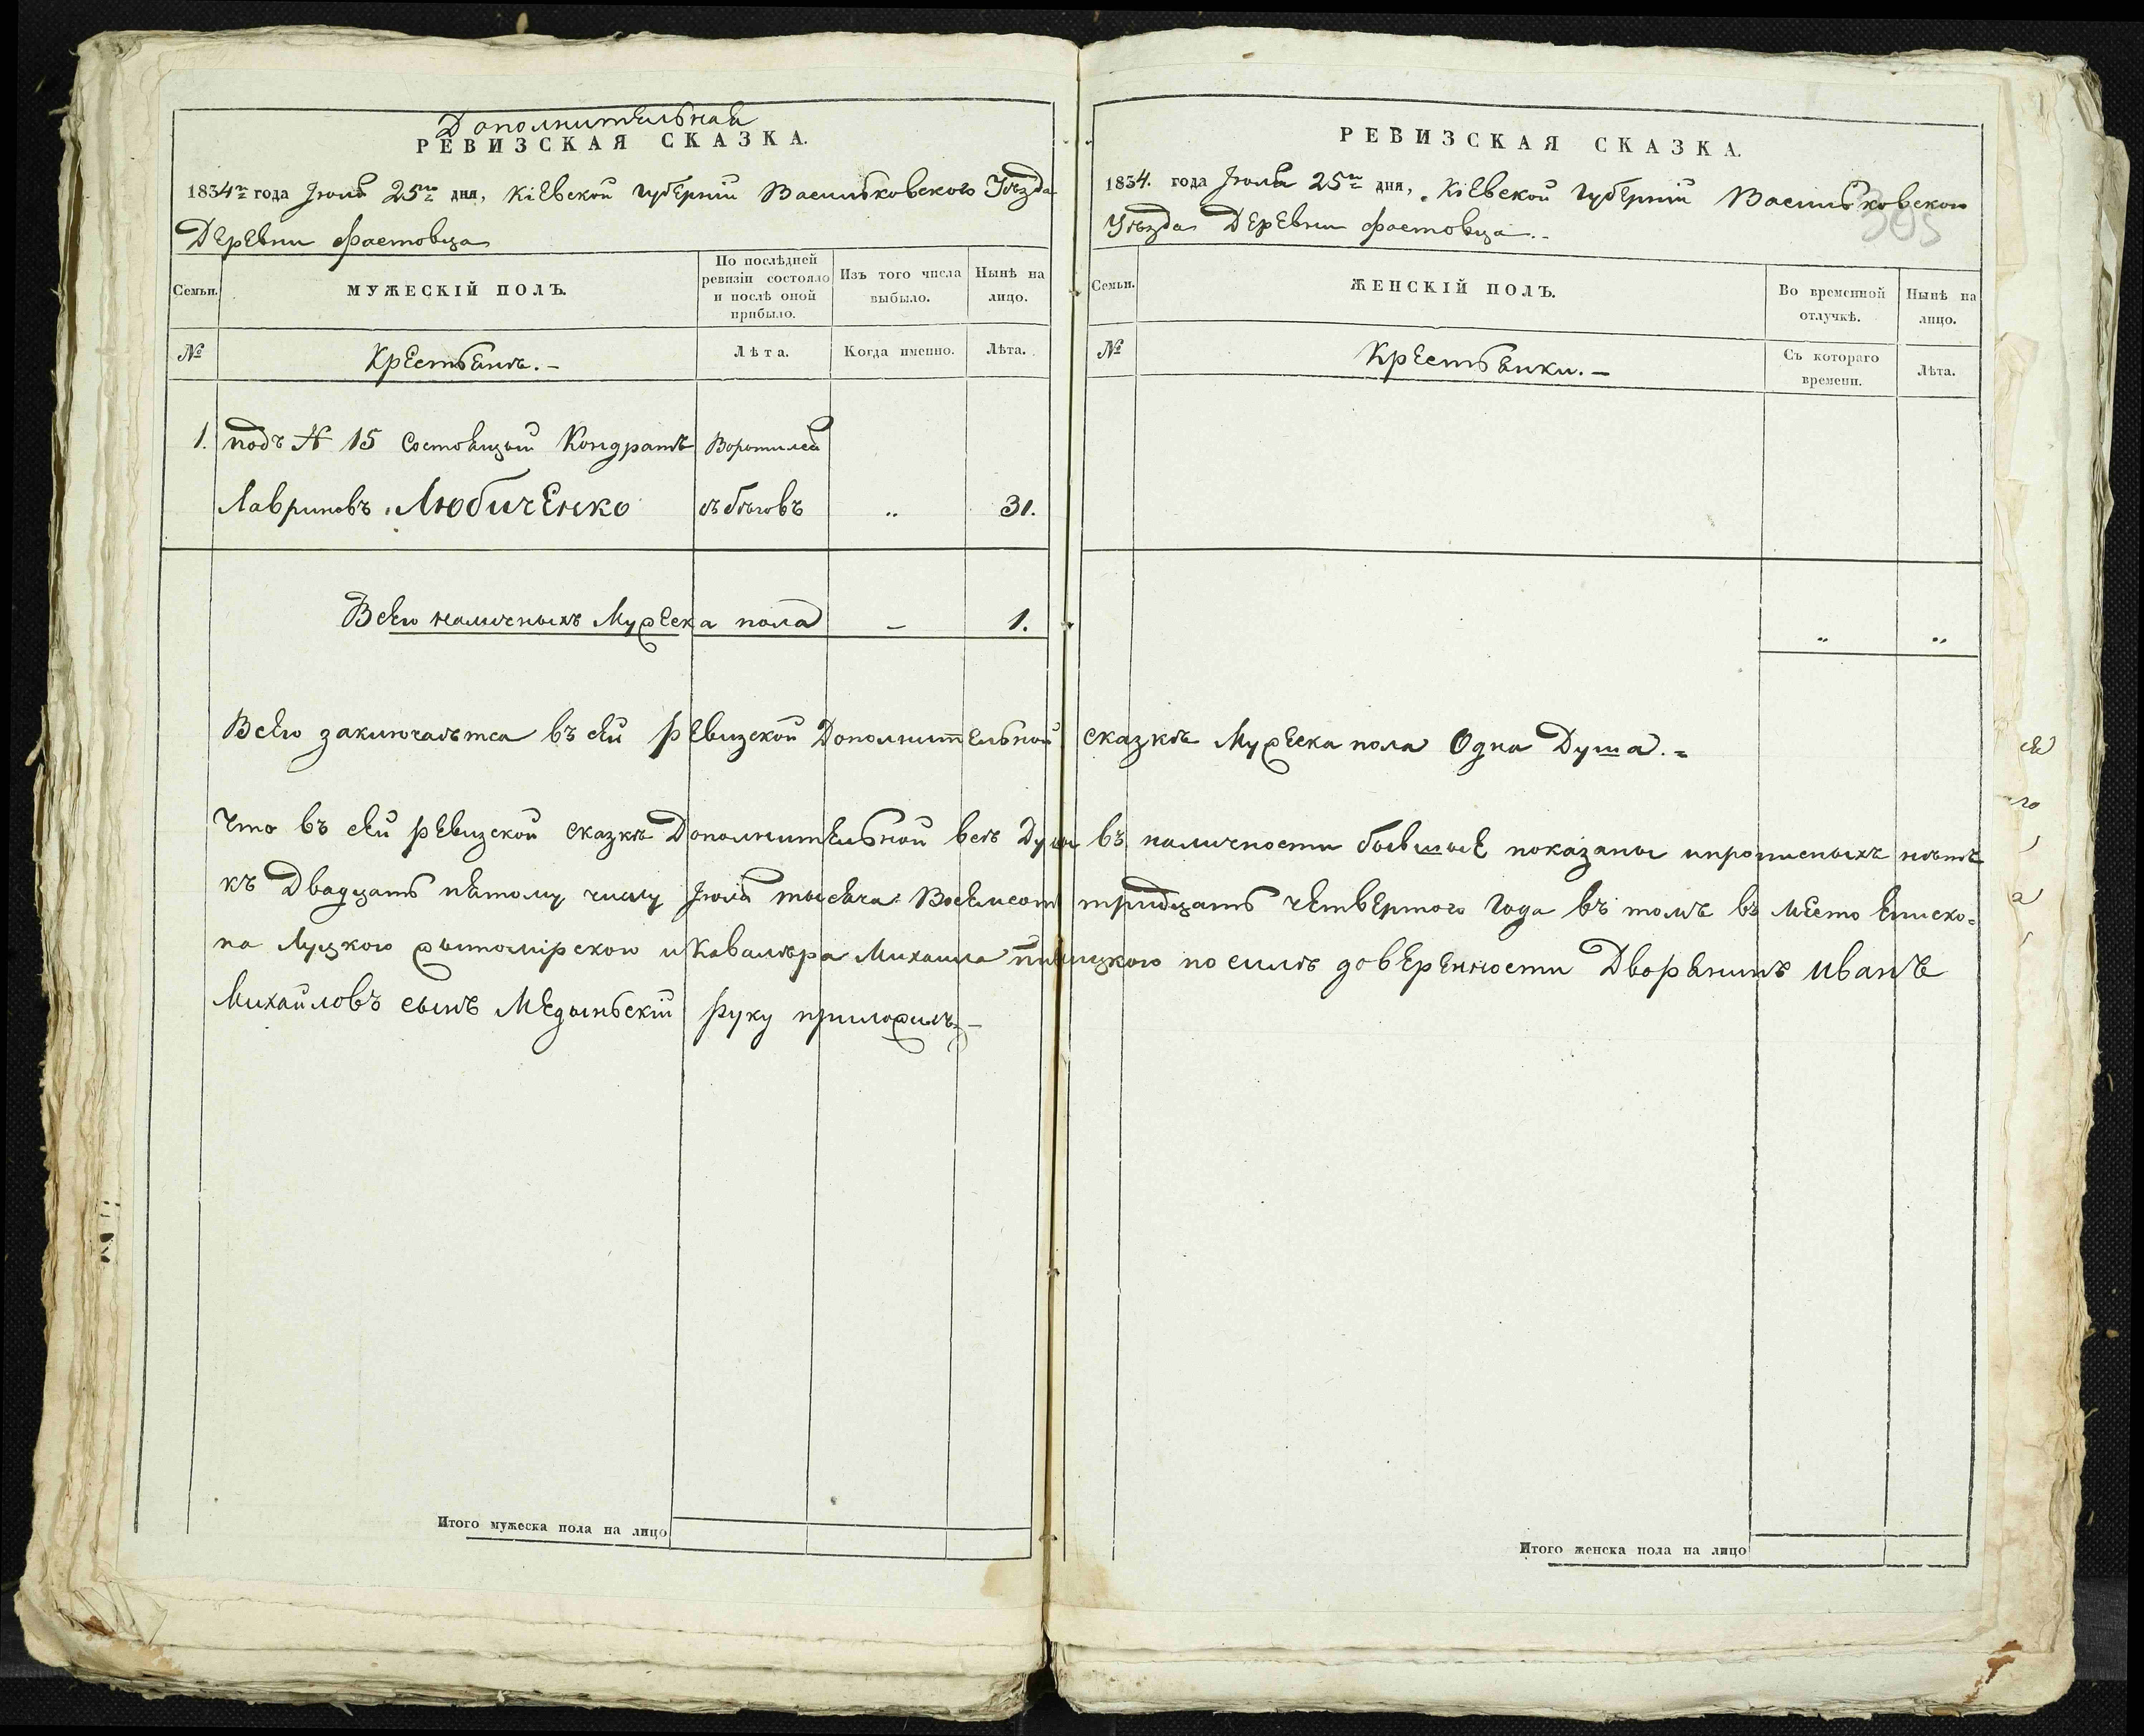 Дополнительная
РЕВИЗСКАЯ СКАЗКА.
1834го года Іюля 25го дня, Кіевской Губерніи Васильковского Уѣзда
Деревни Фастовца
Семьи.
МУЖЕСКІЙ ПОЛЪ.
По послѣдней ревизіи состояло и послѣ оной прибыло.
Изъ того числа выбыло.
Нынѣ на лицо.
№
Крестьянъ. –
Лѣта.
Когда именно.
Лѣта.
1. подъ № 15 Состоящый Кондратъ Воротился
Лавриновъ Любиченко съ бѣговъ „ 31.
Всего наличныхъ Мужеска пола – 1.
РЕВИЗСКАЯ СКАЗКА.
1834. года Іюля 25го дня, Кіевской Губерніи Васильковского
Уѣзда Деревни Фастовца.
305
Семьи.
ЖЕНСКІЙ ПОЛЪ.
Во временной отлучкѣ.
Нынѣ на лицо.
№
Крестьянки. –
Съ котораго времени.
Лѣта.
„ „
Всего заключаѣтса въ сей ревизской Дополнительной сказкѣ Мужеска пола Одна Душа. =
Что въ сей ревизской сказкѣ Дополнительной всѣ Души въ наличности бывшые показаны и прописныхъ нѣтъ
къ Двадцать пятому числу Іюля тысяча Восемсот тридцать четвертого Года въ томъ въ место Еписко-
па Луцкого Житомірского и Кавалѣра Михаила по силѣ доверенности Дворянинъ Иванъ
Михайловъ сынъ Медыньскій руку приложилъ –
Итого мужеска пола на лицо
Итого женска пола на лицо